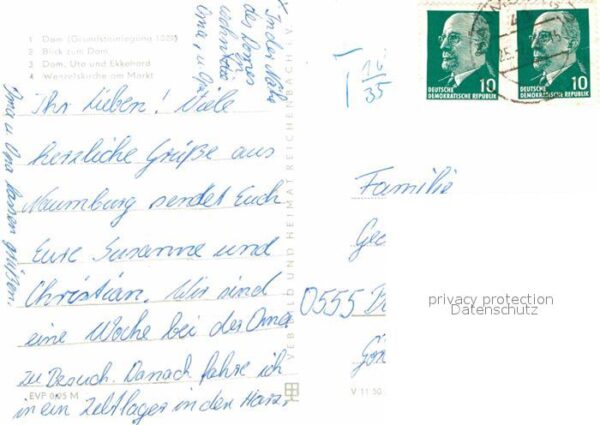 1 Dom (Grundsteinlegung 1029)
2 Blick zum Dom
3 Dom, Uta und Ekkehard
4 Wenzelskirche am Markt
Ihr Lieben! Viele
herzliche Grüße aus
Naumburg sendet Euch
Eure Susanne und
Christian. Wir sind
eine Woche bei der Oma
zu Besuch. Danach fahre ich
in ein Zeltlager in den Harz.
Opa u. Oma lassen grüßen.
x In der Nähe
des Domes
wohnen
Oma u. Opa
EVP 0,95 M
VEB BILD UND HEIMAT REICHENBACH I. V.
V 11 50
T 16
35
10
DEUTSCHE
DEMOKRATISCHE REPUBLIK
10
DEUTSCHE
DEMOKRATISCHE REPUBLIK
Familie
0555
privacy protection
Datenschutz